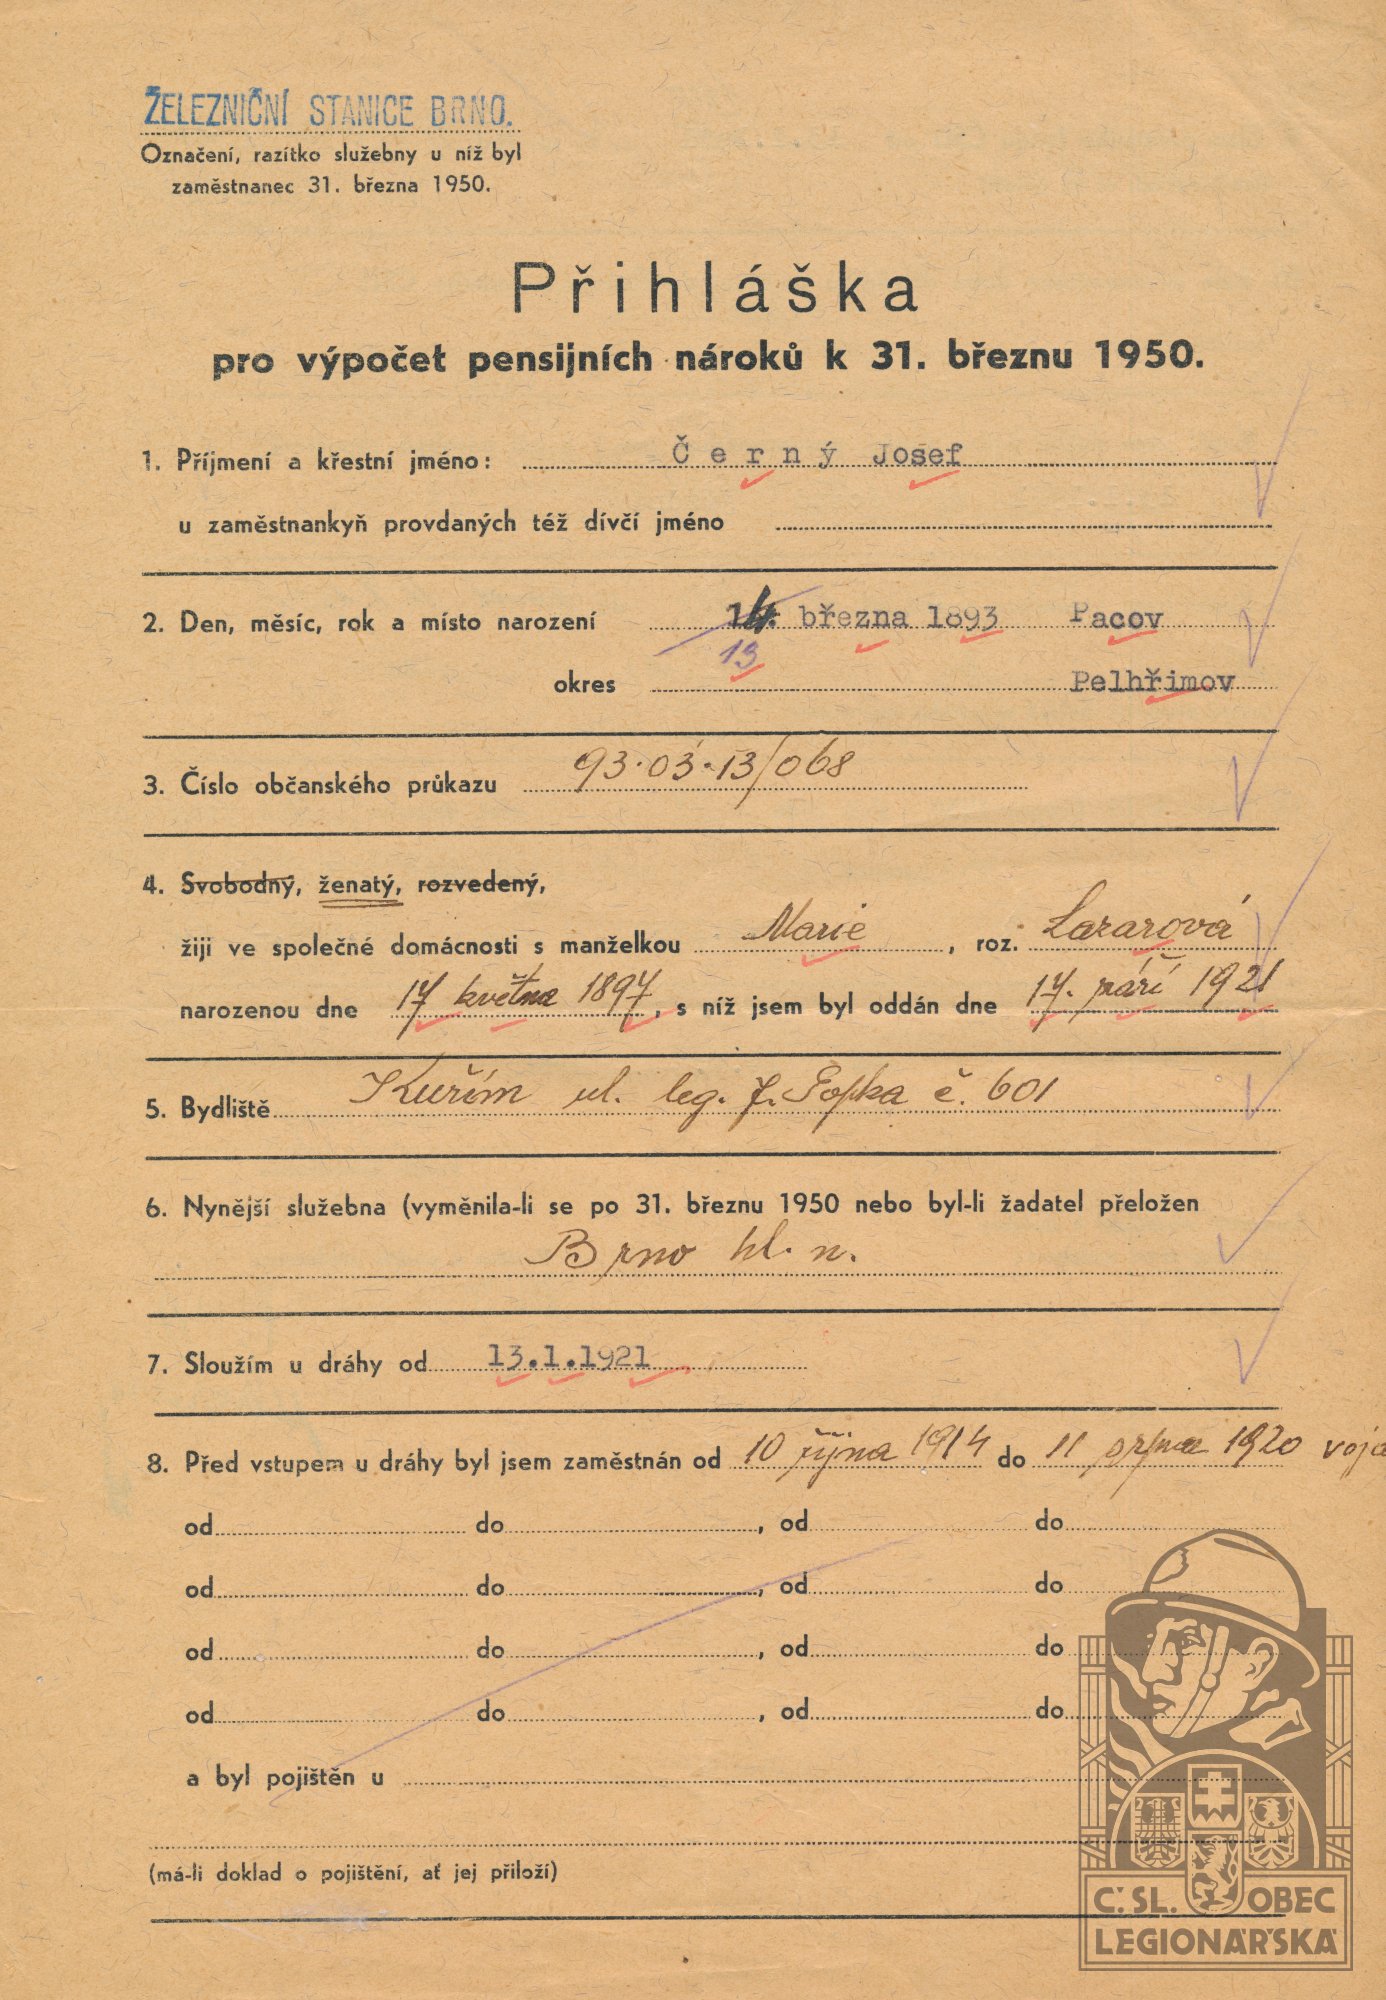 ŽELEZNIČNÍ STANICE BRNO.
Označení, razítko služebny u níž byl
zaměstnanec 31. března 1950.
Přihláška
pro výpočet pensijních nároků k 31. březnu 1950.
1. Příjmení a křestní jméno: Černý Josef
u zaměstnankyň provdaných též dívčí jméno
2. Den, měsíc, rok a místo narození 14. března 1893 Pacov
13
okres Pelhřimov
3. Číslo občanského průkazu 93.03.13/068
4. Svobodný, ženatý, rozvedený,
žiji ve společné domácnosti s manželkou Marie, roz. Lazarová
narozenou dne 17 května 1897, s níž jsem byl oddán dne 17. září 1921
5. Bydliště Kuřim ul. leg. J. č. 601
6. Nynější služebna (vyměnila-li se po 31. březnu 1950 nebo byl-li žadatel přeložen
Brno hl. n.
7. Sloužím u dráhy od 13.1.1921
8. Před vstupem u dráhy byl jsem zaměstnán od 10 října 1914 do 11 srpna 1920 voja
od do , od do
od do , od do
od do , od do
od do , od do
a byl pojištěn u
(má-li doklad o pojištění, ať jej přiloží)
Č. SL. OBEC
LEGIONÁŘSKÁ